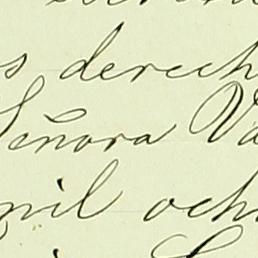 s derech
Señora Va
mil och